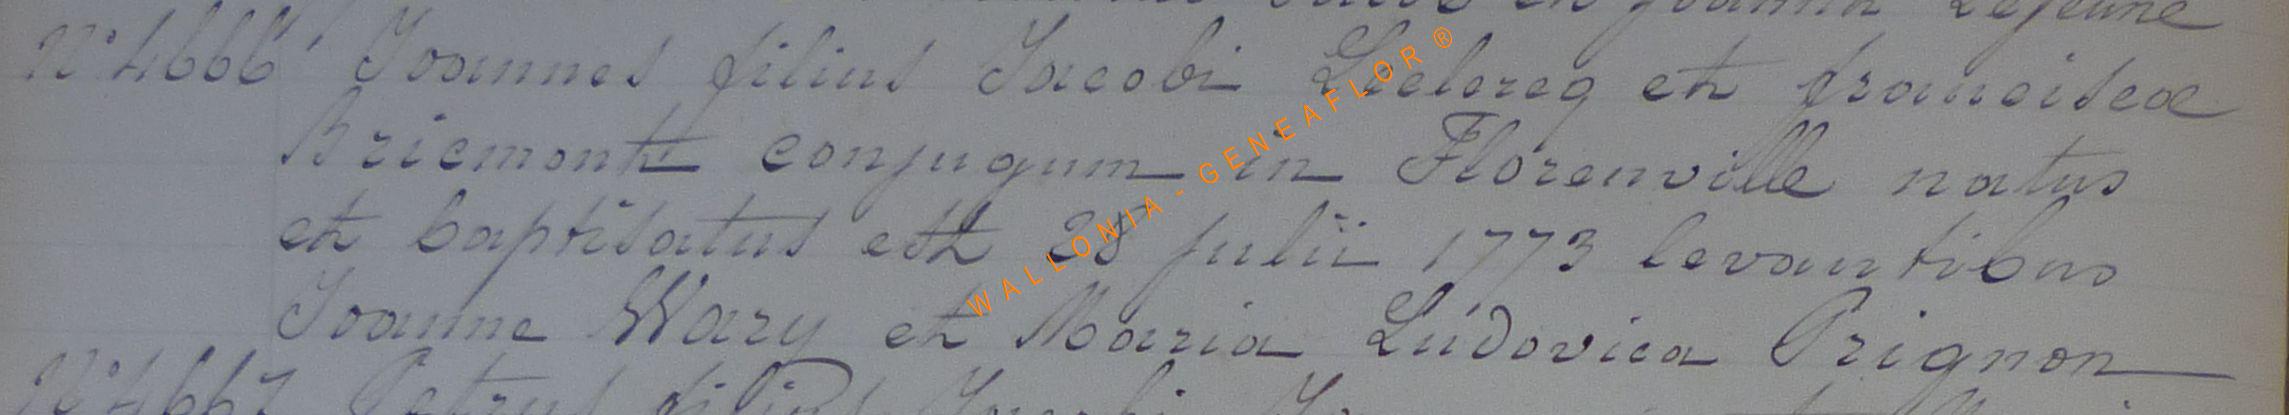 en Joanna Lejeune
N° 4666 Joannes filius Jacobi Leclercq et franciscæ
Briemont conjugum in Florenville natus
et baptisatus est 28 julii 1773 levantibus
Joanne Wary et Maria Ludovica Prignon
N° 4667 Petrus filius Jacobi
WALLONIA - GENEAFLOR ®